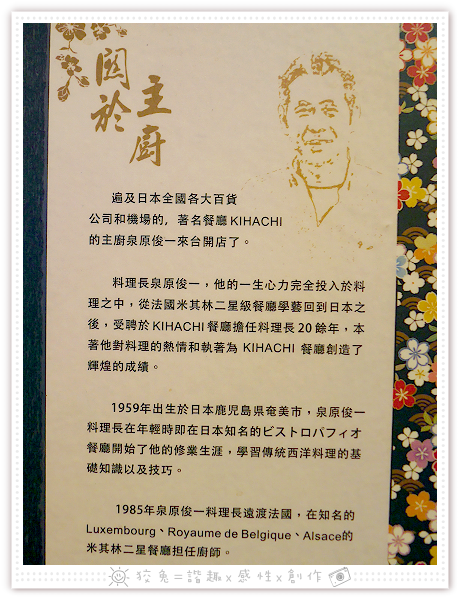 關於
主廚
遍及日本全國各大百貨
公司和機場的，著名餐廳 KIHACHI
的主廚泉原俊一來台開店了。
料理長泉原俊一，他的一生心力完全投入於料
理之中，從法國米其林二星級餐廳學藝回到日本之
後，受聘於 KIHACHI 餐廳擔任料理長 20 餘年，本
著他對料理的熱情和執著為 KIHACHI 餐廳創造了
輝煌的成績。
1959年出生於日本鹿児島県奄美市，泉原俊一
料理長在年輕時即在日本知名的ビストロパフィオ
餐廳開始了他的修業生涯，學習傳統西洋料理的基
礎知識以及技巧。
1985年泉原俊一料理長遠渡法國，在知名的
Luxembourg、Royaume de Belgique、Alsace的
米其林二星餐廳担任廚師。
狡兔=諧趣x感性x創作